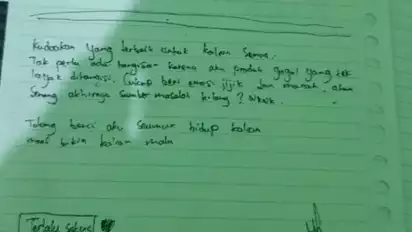 Kudoakan yang terbaik untuk kalian semua.
Tak perlu ada tangisan karena aku produk gagal yang tak
layak ditangisi. Cukup beri emosi jijik dan marah, atau
senang akhirnya sumber masalah hilang?
Tolong benci aku seumur hidup kalian
maaf bikin kalian malu